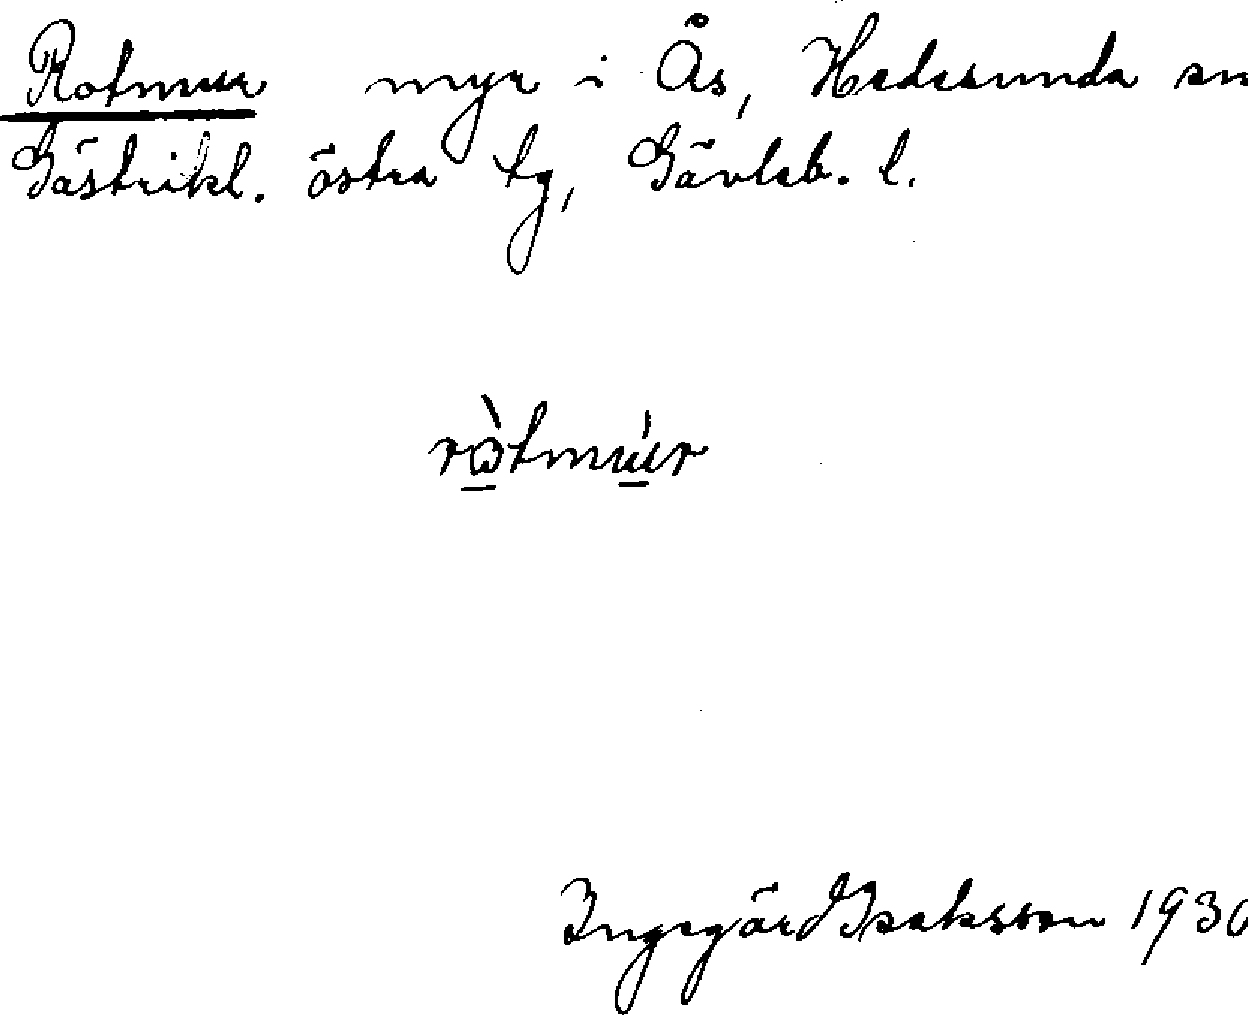 Rotmur myr i Ås, Hedesunda sn
Gästrikl. östra tg, Gävleb. l.
rò̱tmú̱r
Ingegärd Isaksson 1930